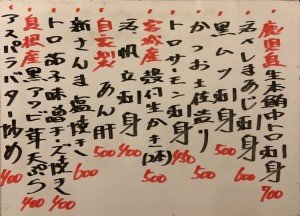 鹿児島産生本鮪中トロ刺身 700
活〆しまあじ刺身 600
黒ムツ刺身 500
かつお土佐造り 500
トロサーモン刺身 450
宮城産殻付生かき(2本) 500
活帆立刺身 400
自家製あん肝 500
新さんま塩焼き 600
トロ茄子味噌チーズ焼 400
島根産黒アワビ茸天ぷら 400
アスパラバター炒め 400